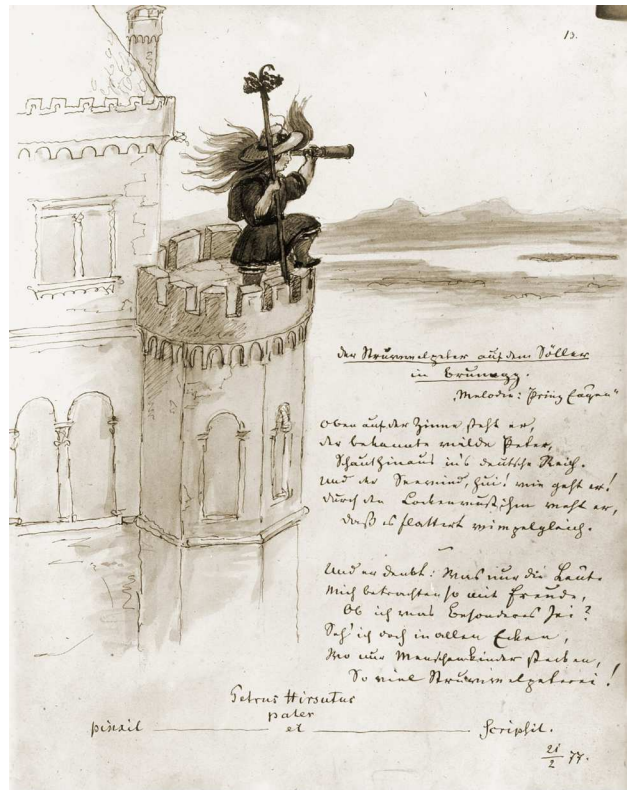 13.
der Struwwelpeter auf dem Söller
in Brunegg.
„Melodie: Prinz Eugen“
Oben auf der Zinne steht er,
der bekannte wilde Peter,
Schaut hinaus in's deutsche Reich.
Und der Seewind, hui! wie geht er!
durch den Lockenwust ihm weht er,
daß es flattert wimpelgleich.
Und er denkt: Was nur die Leute
Mich betrachten so mit Freude,
Ob ich was Besonderes sei?
Seh' ich doch in allen Ecken,
Wo nur Menschenkinder stecken,
So viel Struwwelpeterei!
Petrus Hirsutus
pater
pinxit et scripsit.
21/2 77.